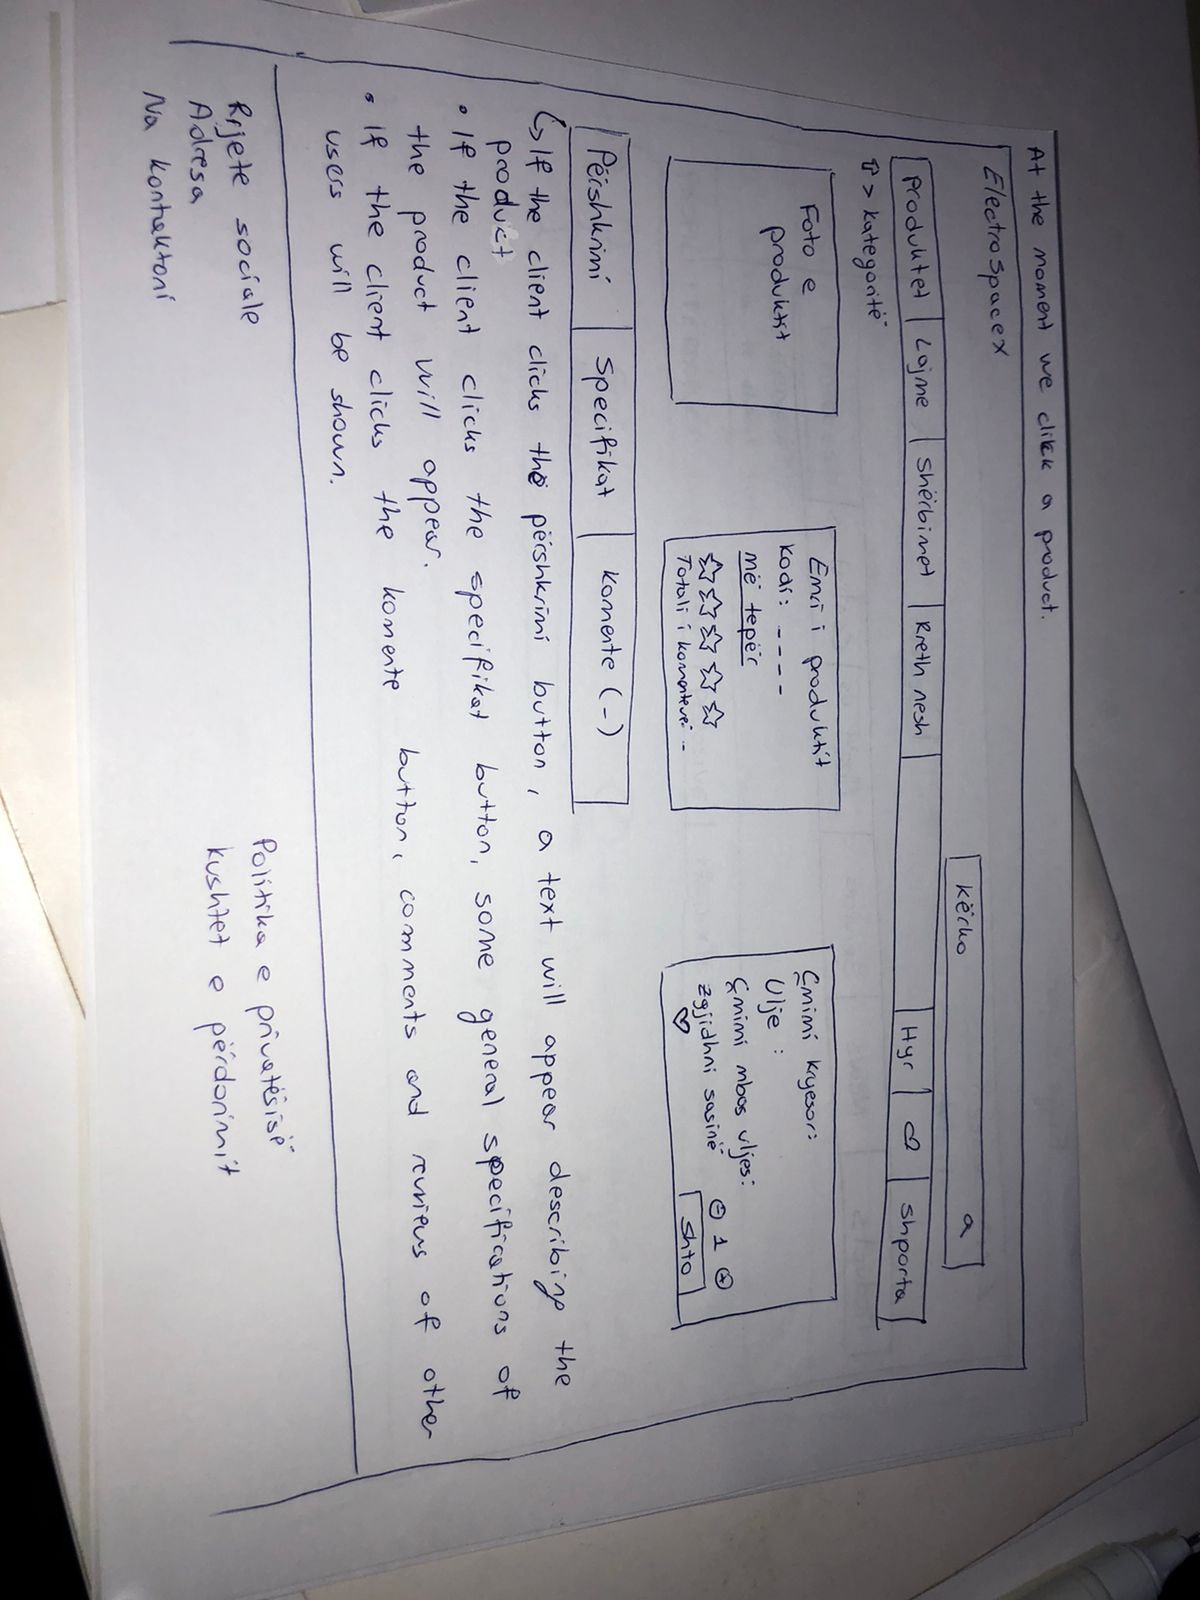 At the moment we click a product.
ElectrospaceX
kërko
produktet Lajme Shërbimet Rreth nesh Hyr Shporta
> kategoritë
Foto e
produktit
Emri i produktit
Kodi: ----
më tepër
Totali i komenteve: -
Çmimi kryesor:
Ulje :
Çmimi mbas uljes:
zgjidhni sasinë - 1 +
Shto
Përshkrimi Specifikat Komente (-)
↳ If the client clicks the përshkrimi button, a text will appear describing the
product
• If the client clicks the specifikat button, some general specifications of
the product will appear.
• If the client clicks the komente button, comments and reviews of other
users will be shown.
Rrjete sociale
Adresa
Na kontaktoni
Politika e privatësisë
kushtet e përdorimit